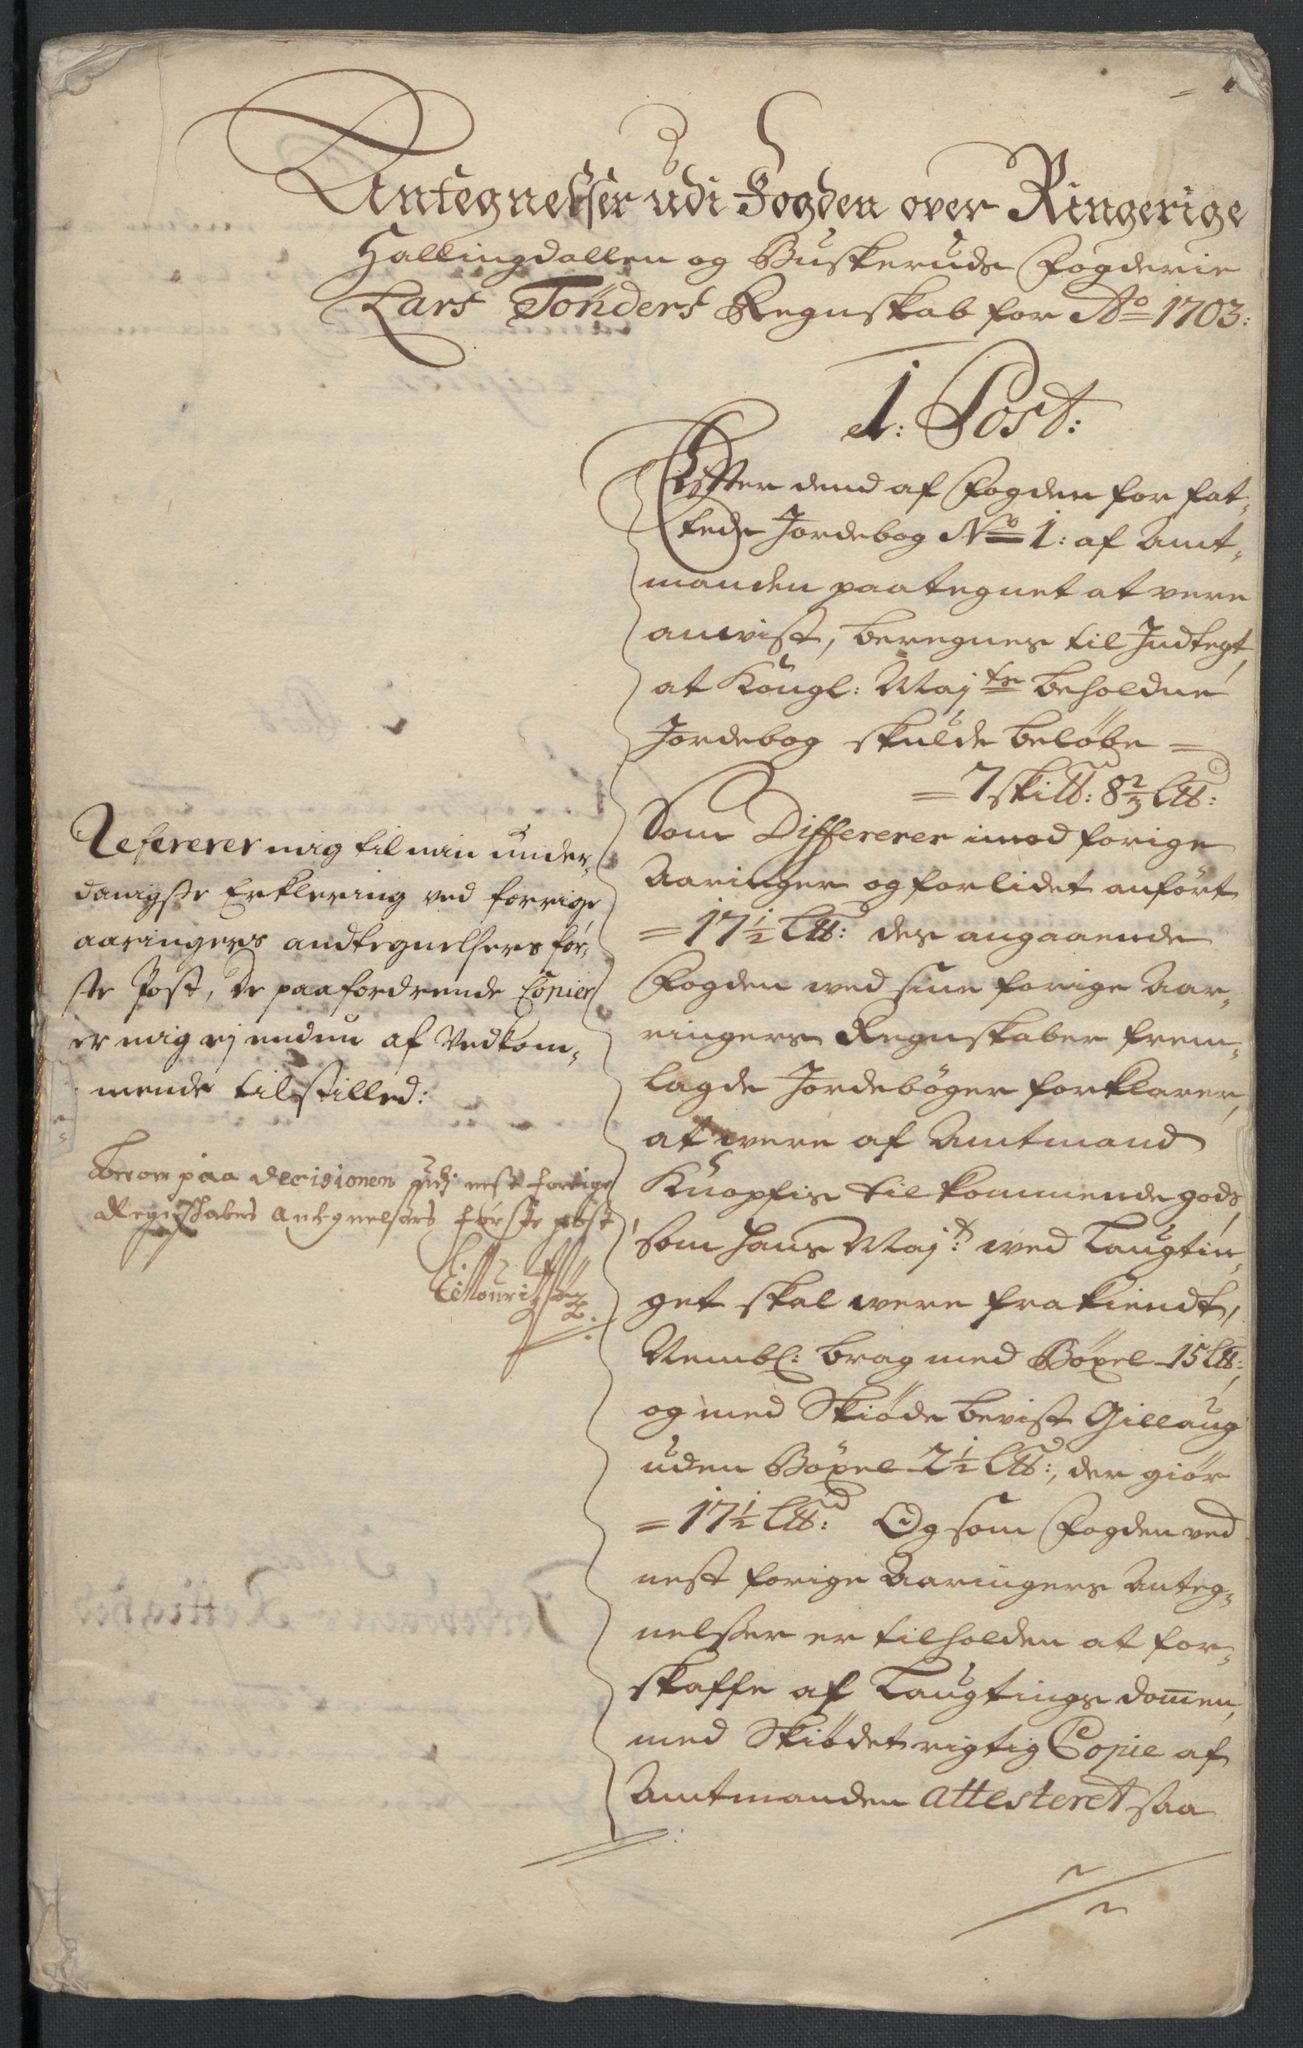 Antegnelser udi Fogden over Ringerige
Hallingdallen og Buskeruds Fogderie
Lars Tønders Regnskab for Ao 1703:
1: Post:
Efter dend af Fogden forfat-
tede Jordebog No 1: af Amt-
manden paategnet at vere
anvist, beregnes til Indtegt,
at Kongl: Maj:ts beholdne
Jordebog skulde beløbe =
= 7 skill: 8 2/3 Lb:
Som Differerer imod forige
Aaringer og forlidet anført
= 17 1/2 Lb: des angaaende
Fogden ved sine forige Aar-
ringers Regnskaber frem-
lagde Jordebøger forklarer,
at were af Amtmand
Knopfis tilkommende gods,
som Hans Maj:t ved Laugtin-
get skal were frakiendt,
Nembl: brag med Bøxel 15 Lb:
og med Skiøde bevist Gillaug
uden Bøxel 2 1/2 Lb:, der giør
= 17 1/2 Lb: Og som Fogden ved
nest forige Aaringers Anteg-
nelser er tilholden at for-
skaffe af Laugtings domen,
med Skiødet rigtig Copie af
Amtmanden attesteret saa
Refererer mig til min under-
danigste Erklering ved forrige
aaringers andtegnelsers før-
ste Post, de paafordrende Copier
er mig ej endnu af Vedkom-
mende tilstilled:
Beror paa decisionen udj nest forrige
Regnskabes Antegnelsers første post